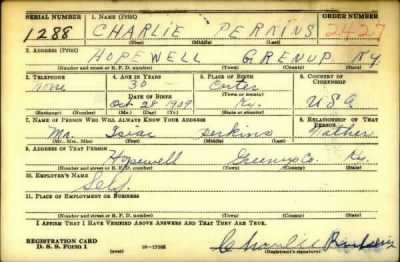 SERIAL NUMBER 1. NAME (Print) ORDER NUMBER
1288 CHARLIE PERKINS 2427
(First) (Middle) (Last)
2. ADDRESS (Print)
HOPEWELL GRENUP. Ky.
(Number and street or R. F. D. number) (Town) (County) (State)
3. TELEPHONE 4. AGE IN YEARS 5. PLACE OF BIRTH 6. COUNTRY OF CITIZENSHIP
None 30 Carter
DATE OF BIRTH (Town or county)
Oct 28 1909 Ky. U.S.A
(Exchange) (Number) (Mo.) (Day) (Yr.) (State or country)
7. NAME OF PERSON WHO WILL ALWAYS KNOW YOUR ADDRESS 8. RELATIONSHIP OF THAT PERSON
Mr. Isiac Perkins Father
(Mr., Mrs., Miss) (First) (Middle) (Last)
9. ADDRESS OF THAT PERSON
Hopewell Greenup Co. Ky.
(Number and street or R. F. D. number) (Town) (County) (State)
10. EMPLOYER'S NAME
Self.
11. PLACE OF EMPLOYMENT OR BUSINESS
(Number and street or R. F. D. number) (Town) (County) (State)
I AFFIRM THAT I HAVE VERIFIED ABOVE ANSWERS AND THAT THEY ARE TRUE.
REGISTRATION CARD
D. S. S. Form 1 (over) 16—17105 Charlie Perkins
(Registrant's signature)